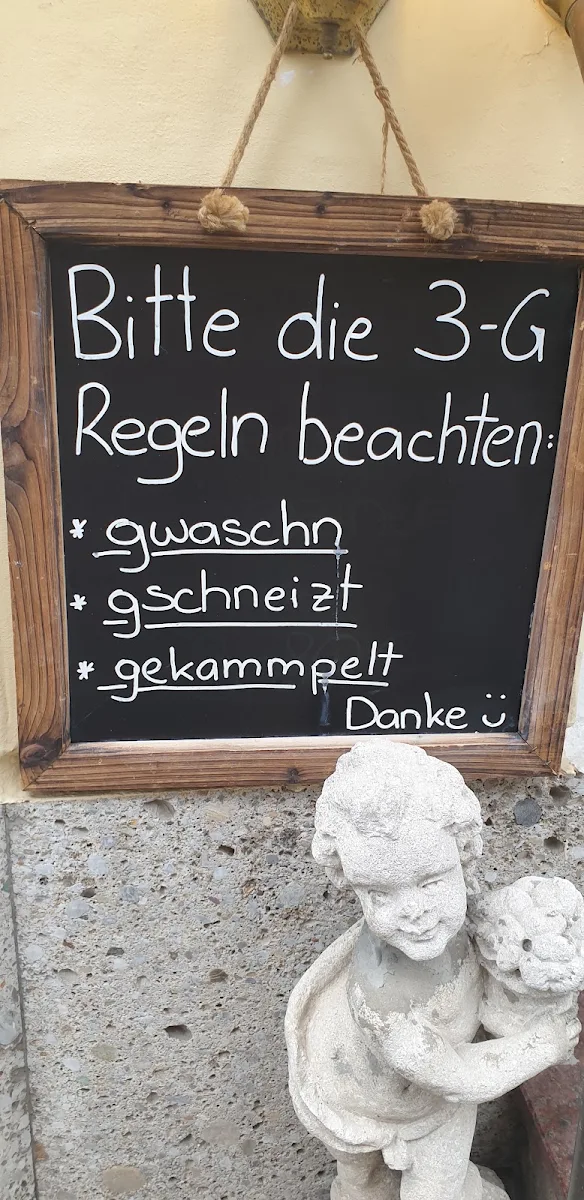 Bitte die 3-G
Regeln beachten:
* gwaschn
* gschneizt
* gekammpelt
Danke ü